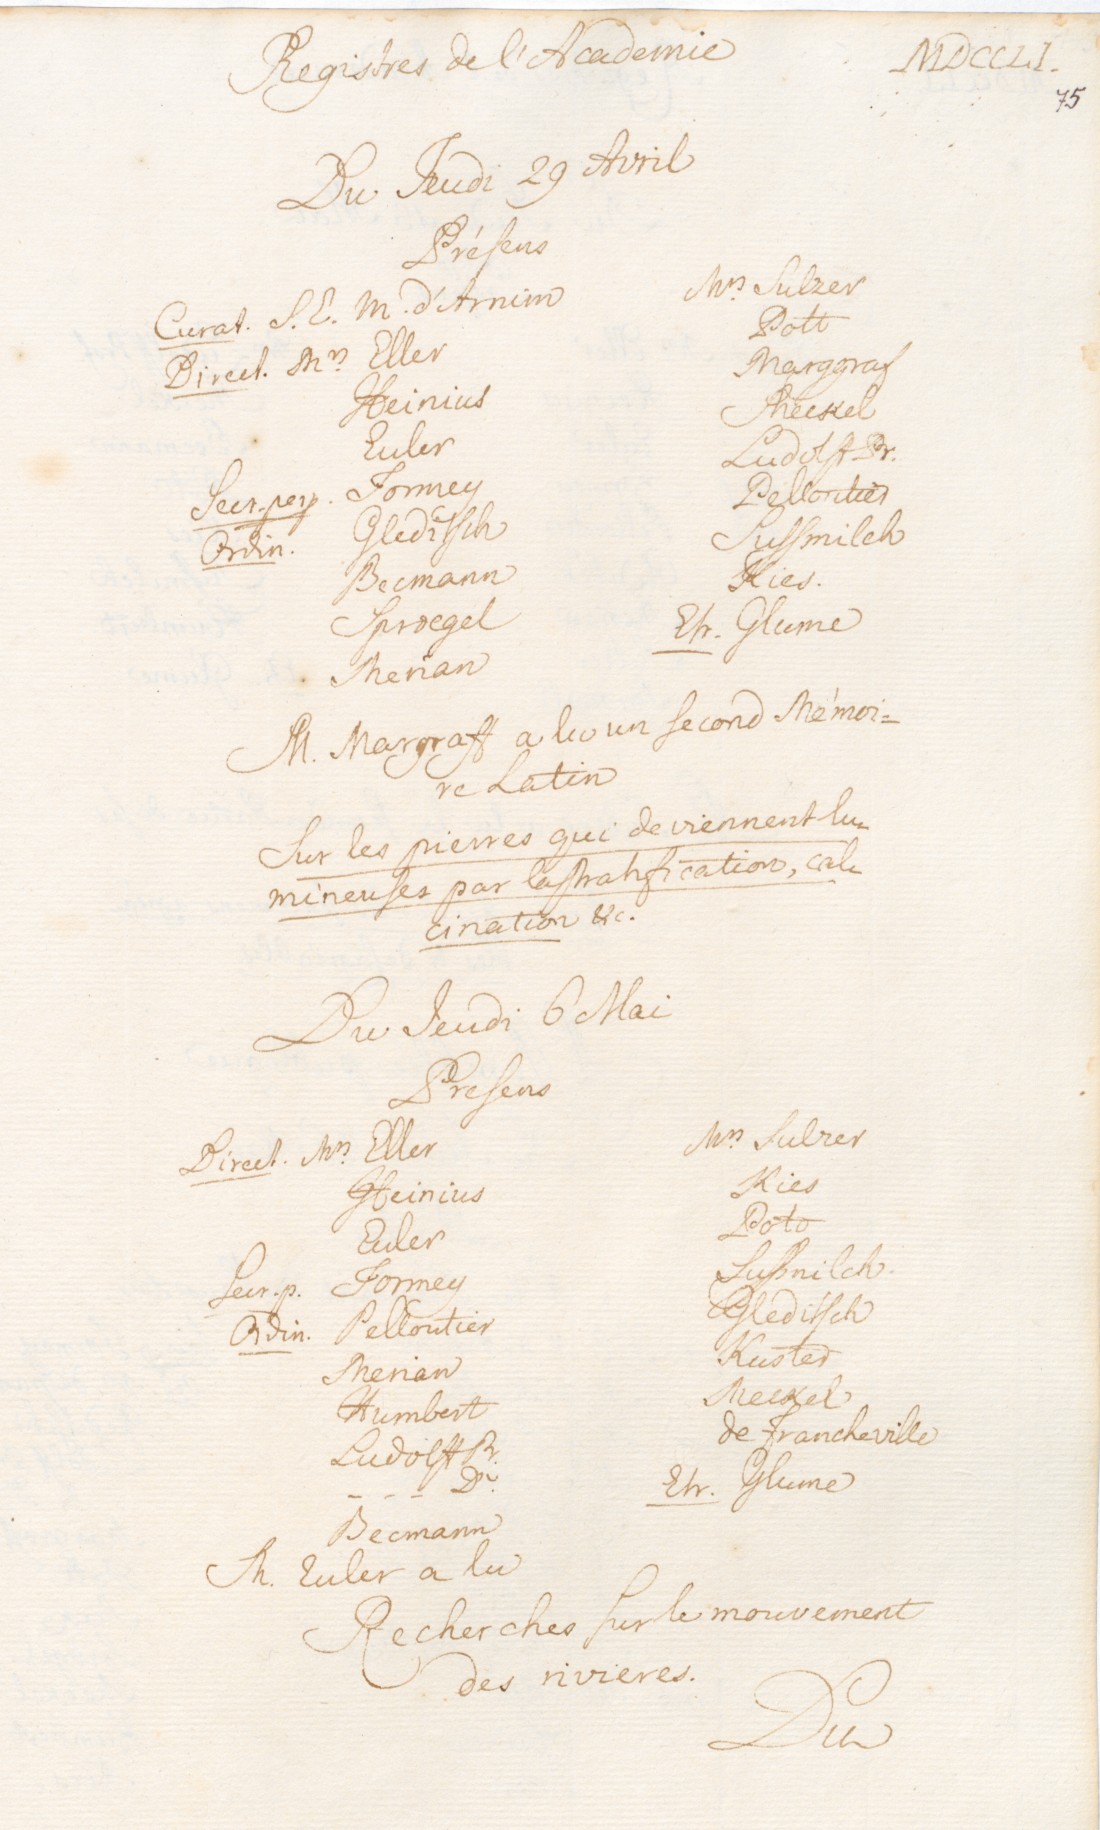 Registres de l'Academie
MDCCLI.
75
Du Jeudi 29 Avril
Présens
Curat. S. E. M. d'Arnim
Direct. Mrs Eller
Heinius
Euler
Secr. perp. Formey
Ordin. Gleditsch
Becmann
Sproegel
Merian
Mrs Sulzer
Pott
Marggraf
Meckel
Ludolff Pr.
Pelloutier
Sussmilch
Kies.
Etr. Glume
M. Margraff a lu un second Mémoi=
re Latin
Sur les pierres qui deviennent lu-
mineuses par la stratification, cal-
cination &c.
Du Jeudi 6 Mai
Presens
Direct. Mrs Eller
Heinius
Euler
Secr. p. Formey
Ordin. Pelloutier
Merian
Humbert
Ludolff Pr.
- - - Dr.
Becmann
Mrs Sulzer
Kies
Pott
Sussmilch.
Gleditsch
Kuster
Meckel
de Francheville
Etr. Glume
M. Euler a lu
Recherches sur le mouvement
des rivieres.
Du